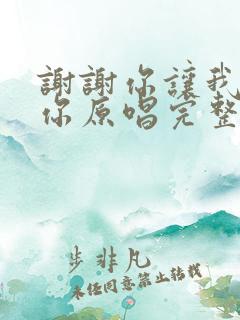 謝謝你讓我
你原唱完整
步非凡
未经同意禁止转载